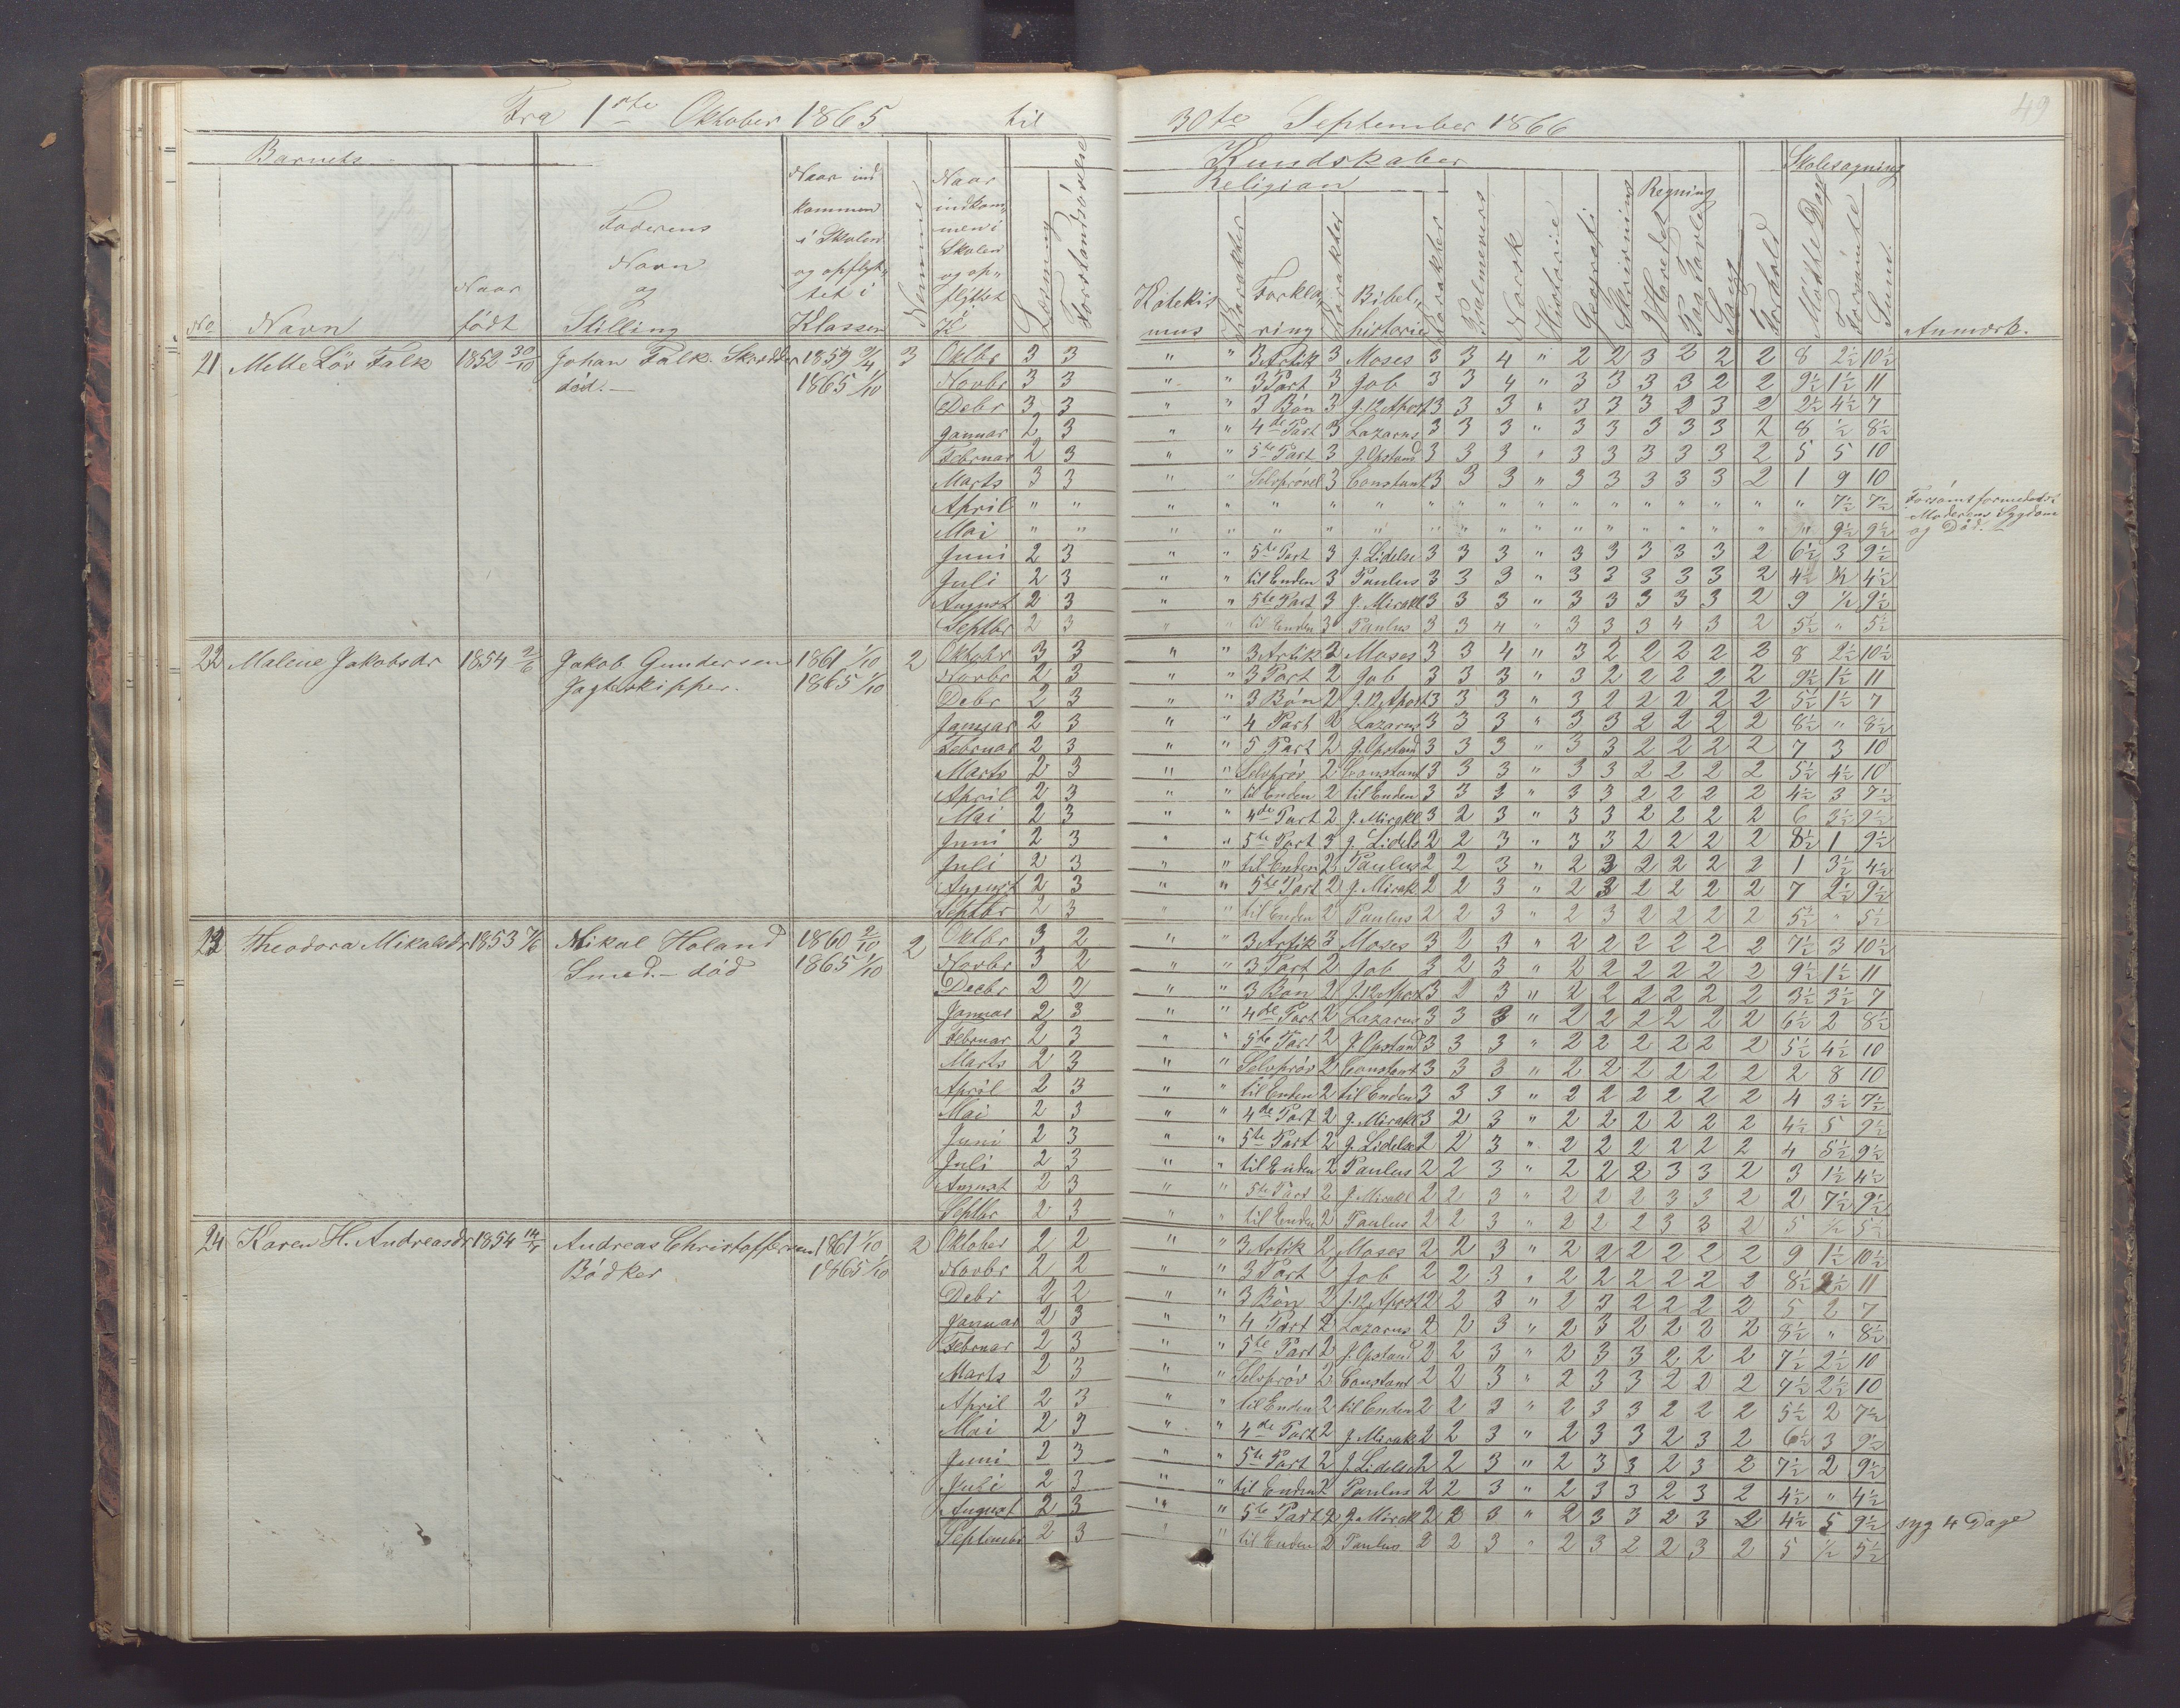 49
Fra 1ste Oktober 1865 til 30te September 1866
Barnets
No
Navn
Naar født
Faderens Navn og Stilling
Naar ind kommen i Skolen og opflyttet i Klassen
Nemme
Naar indkommen i Skolen og opflyttet i Kl
Læsning
Forstandsøvelse
Kundskaber
Religion
Katekismus
Karakter
Forklaring
Karakter
Bibelhistorie
Karakter
Psalmevers
Norsk
Historie
Geografi
Skrivning
Regning
I Hovedet
Paa Tavle
Sang
Forhold
Skolesøgning
Mødte Dage
Forsømte
Sum
Anmærk.
21 Mette Løv Falk 1852 30/10 Johan Falk. Skrædder død. 1859 9/4 1865 1/10 3
Oktbr 3 3 " " 3 Artik 3 Moses 3 3 4 " 2 2 3 2 2 2 8 2½ 10½
Novbr 3 3 " " 3 Part 3 Job 3 3 4 " 3 3 3 3 2 2 9½ 1½ 11
Debr 3 3 " " 3 Bøn 3 J. 12 Apost 3 3 3 " 3 3 3 2 3 2 2½ 4½ 7
Januar 2 3 " " 4de Part 3 Lazarus 3 3 3 " 3 3 3 3 3 2 8 ½ 8½
Februar 2 3 " " 5te Part 3 J. Opstand 3 3 3 " 3 3 3 3 3 2 5 5 10
Marts 3 3 " " Selvprøvel 3 Constant 3 3 3 " 3 3 3 3 3 2 1 9 10
April " " " " " " " " " " " " " " " " " " 7½ 7½ Forsømt formedelst Moderens Sygdom og Død.
Mai " " " " " " " " " " " " " " " " " " 9½ 9½
Juni 2 3 " " 5te Part 3 J. Lidelse 3 3 3 " 3 3 3 3 3 2 6½ 3 9½
Juli 2 3 " " til Enden 3 Paulus 3 3 3 " 3 3 3 3 3 2 4½ ½ 4½
August 2 3 " " 5te Part 3 J. Mirakl 3 3 3 " 3 3 3 3 3 2 9 ½ 9½
Septbr 2 3 " " til Enden 3 Paulus 3 3 4 " 3 3 3 4 3 2 5½ " 5½
22 Malene Jakobsdr 1854 2/6 Jakob Gundersen Jagtskipper. 1861 1/10 1865 1/10 2
Oktobr 3 3 " " 3 Artik 2 Moses 3 3 4 " 3 2 2 2 2 2 8 2½ 10½
Novbr 2 3 " " 3 Part 2 Job 3 3 3 " 3 2 2 2 2 2 9½ 1½ 11
Debr 2 3 " " 3 Bøn 2 J. 12 Apost 3 3 3 " 3 2 2 2 2 2 5½ 1½ 7
Januar 2 3 " " 4 Part 2 Lazarus 3 3 3 " 3 3 2 2 2 2 8½ " 8½
Februar 2 3 " " 5 Part 2 J. Opstand 3 3 3 " 3 3 2 2 2 2 7 3 10
Marts 2 3 " " Selvprøv 2 Constant 3 3 3 " 3 3 2 2 2 2 5½ 4½ 10
April 2 3 " " til Enden 2 til Enden 3 3 3 " 3 3 2 2 2 2 4½ 3 7½
Mai 2 3 " " 4de Part 2 J. Mirakl 3 2 3 " 3 3 2 2 2 2 6 3½ 9½
Juni 2 3 " " 5te Part 3 J. Lidels 2 2 3 " 3 3 2 2 2 2 8½ 1 9½
Juli 2 3 " " til Enden 2 Paulus 2 2 3 " 2 3 2 2 2 2 1 3½ 4½
August 2 3 " " 5te Part 2 J. Mirak 2 2 3 " 2 3 2 2 2 2 7 2½ 9½
Septbr 2 3 " " til Enden 2 Paulus 2 2 3 " 2 3 2 2 2 2 5½ " 5½
23 Theodora Mikalsdr 1853 7/6 Mikal Holand Smed. – død 1860 2/10 1865 1/10 2
Oktbr 3 2 " " 3 Artik 3 Moses 3 2 3 " 2 2 2 2 2 2 7½ 3 10½
Novbr 3 2 " " 3 Part 2 Job 3 2 3 " 2 2 2 2 2 2 9½ 1½ 11
Decbr 2 2 " " 3 Bøn 2 J. 12 Apost 3 2 3 " 2 2 2 2 2 2 3½ 3½ 7
Januar 2 3 " " 4de Part 2 Lazarus 3 3 3 " 2 2 2 2 2 2 6½ 2 8½
Februar 2 3 " " 5te Part 2 J. Opstand 3 3 3 " 2 2 2 2 2 2 5½ 4½ 10
Marts 2 3 " " Selvprøv 2 Constant 3 3 3 " 2 2 2 2 2 2 2 8 10
April 2 3 " " til Enden 2 til Enden 3 3 3 " 2 2 2 2 2 2 4 3½ 7½
Mai 2 3 " " 4de Part 2 J. Mirakl 3 2 3 " 2 2 2 2 2 2 4½ 5 9½
Juni 2 3 " " 5te Part 2 J. Lidelse 2 2 3 " 2 2 2 2 2 2 4 5½ 9½
Juli 2 3 " " til Enden 2 Paulus 2 2 3 " 2 2 2 3 3 2 3 1½ 4½
August 2 3 " " 5te Part 2 J. Mirakl 2 2 3 " 2 2 2 3 3 2 2 7½ 9½
Septbr 2 3 " " til Enden 2 Paulus 2 2 3 " 2 2 2 3 3 2 5 ½ 5½
24 Karen H. Andreasdr 1854 14/5 Andreas Christoffersen Bødker 1861 1/10 1865 1/10 2
Oktober 2 2 " " 3 Artik 2 Moses 2 2 3 " 2 2 2 2 2 2 9 1½ 10½
Novbr 2 2 " " 3 Part 2 Job 2 2 3 " 2 2 2 2 2 2 8½ 2½ 11
Debr 2 2 " " 3 Bøn 2 J. 12 Apost 2 2 3 " 2 3 2 2 2 2 5 2 7
Januar 2 3 " " 4 Part 2 Lazarus 2 2 3 " 2 3 2 2 2 2 8½ " 8½
Februar 2 3 " " 5te Part 2 J. Opstand 2 2 3 " 2 3 3 2 2 2 7½ 2½ 10
Marts 2 3 " " Selvprøv 2 Constant 2 2 3 " 2 3 3 2 2 2 7½ 2½ 10
April 2 3 " " til Enden 2 til Enden 2 2 3 " 2 3 3 2 2 2 5½ 2 7½
Mai 2 3 " " 4de Part 2 J. Mirakl 2 2 3 " 2 3 3 2 3 2 6½ 3 9½
Juni 2 3 " " 5te Part 2 J. Lidelse 2 2 3 " 2 3 3 2 3 2 7½ 2 9½
Juli 2 3 " " til Enden 2 Paulus 2 2 3 " 2 3 3 2 3 2 4½ " 4½
August 2 3 " " 5te Part 2 J. Mirak 2 2 3 " 2 3 3 2 3 2 4½ 5 9½ syg 4 Dage
Septembr 2 3 " " til Enden 2 Paulus 2 2 3 " 2 3 2 2 3 2 5 ½ 5½